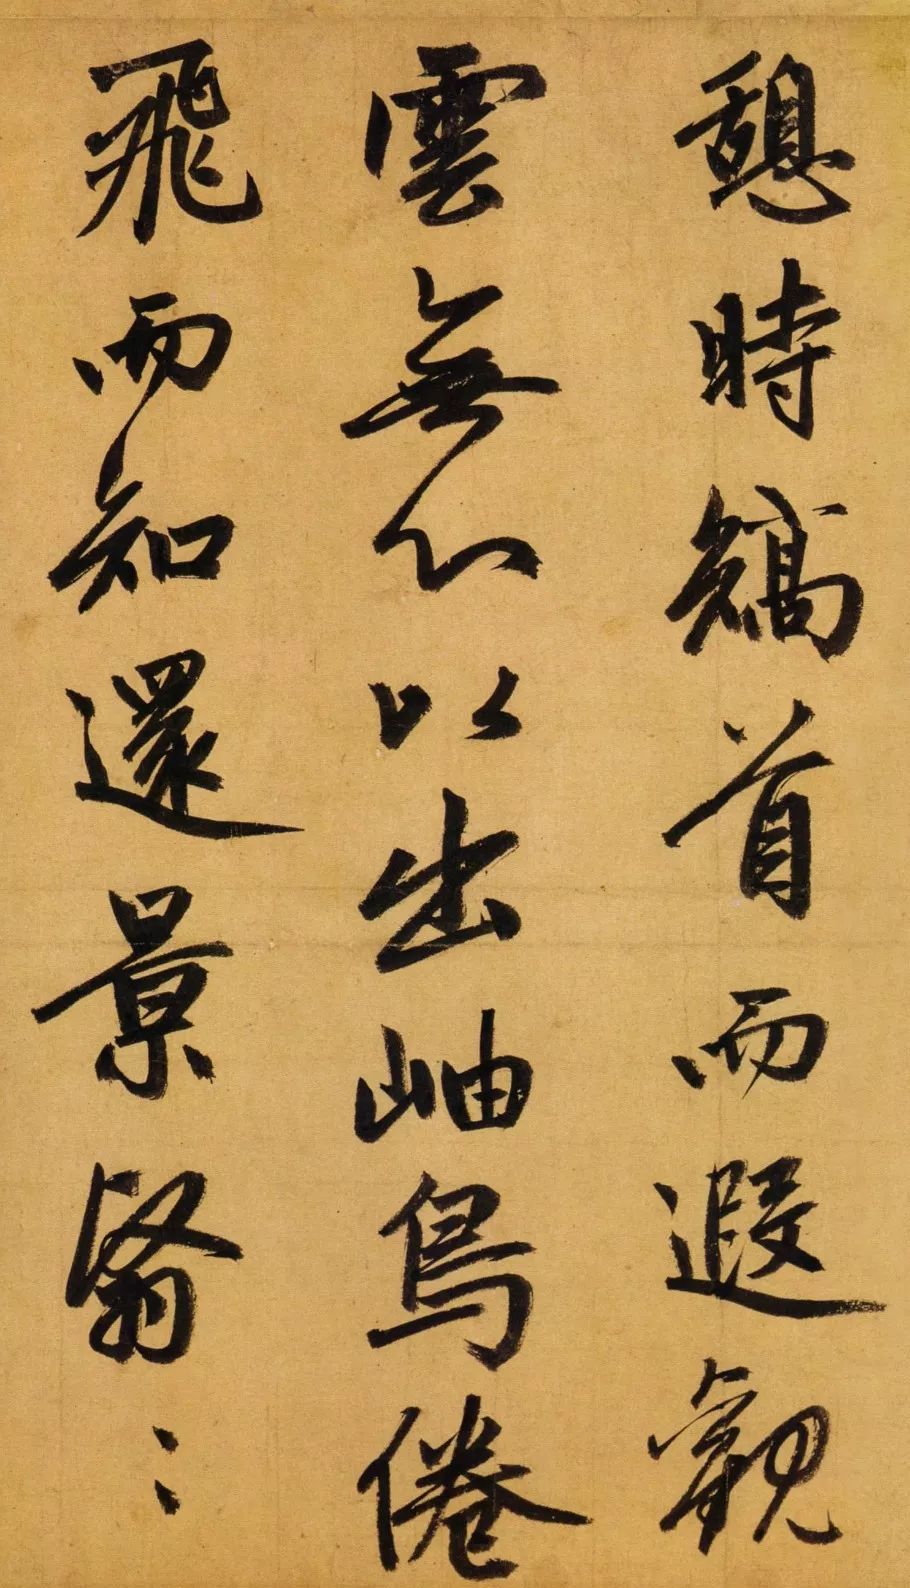 憩時矯首而遐觀
雲無心以出岫鳥倦
飛而知還景翳〻